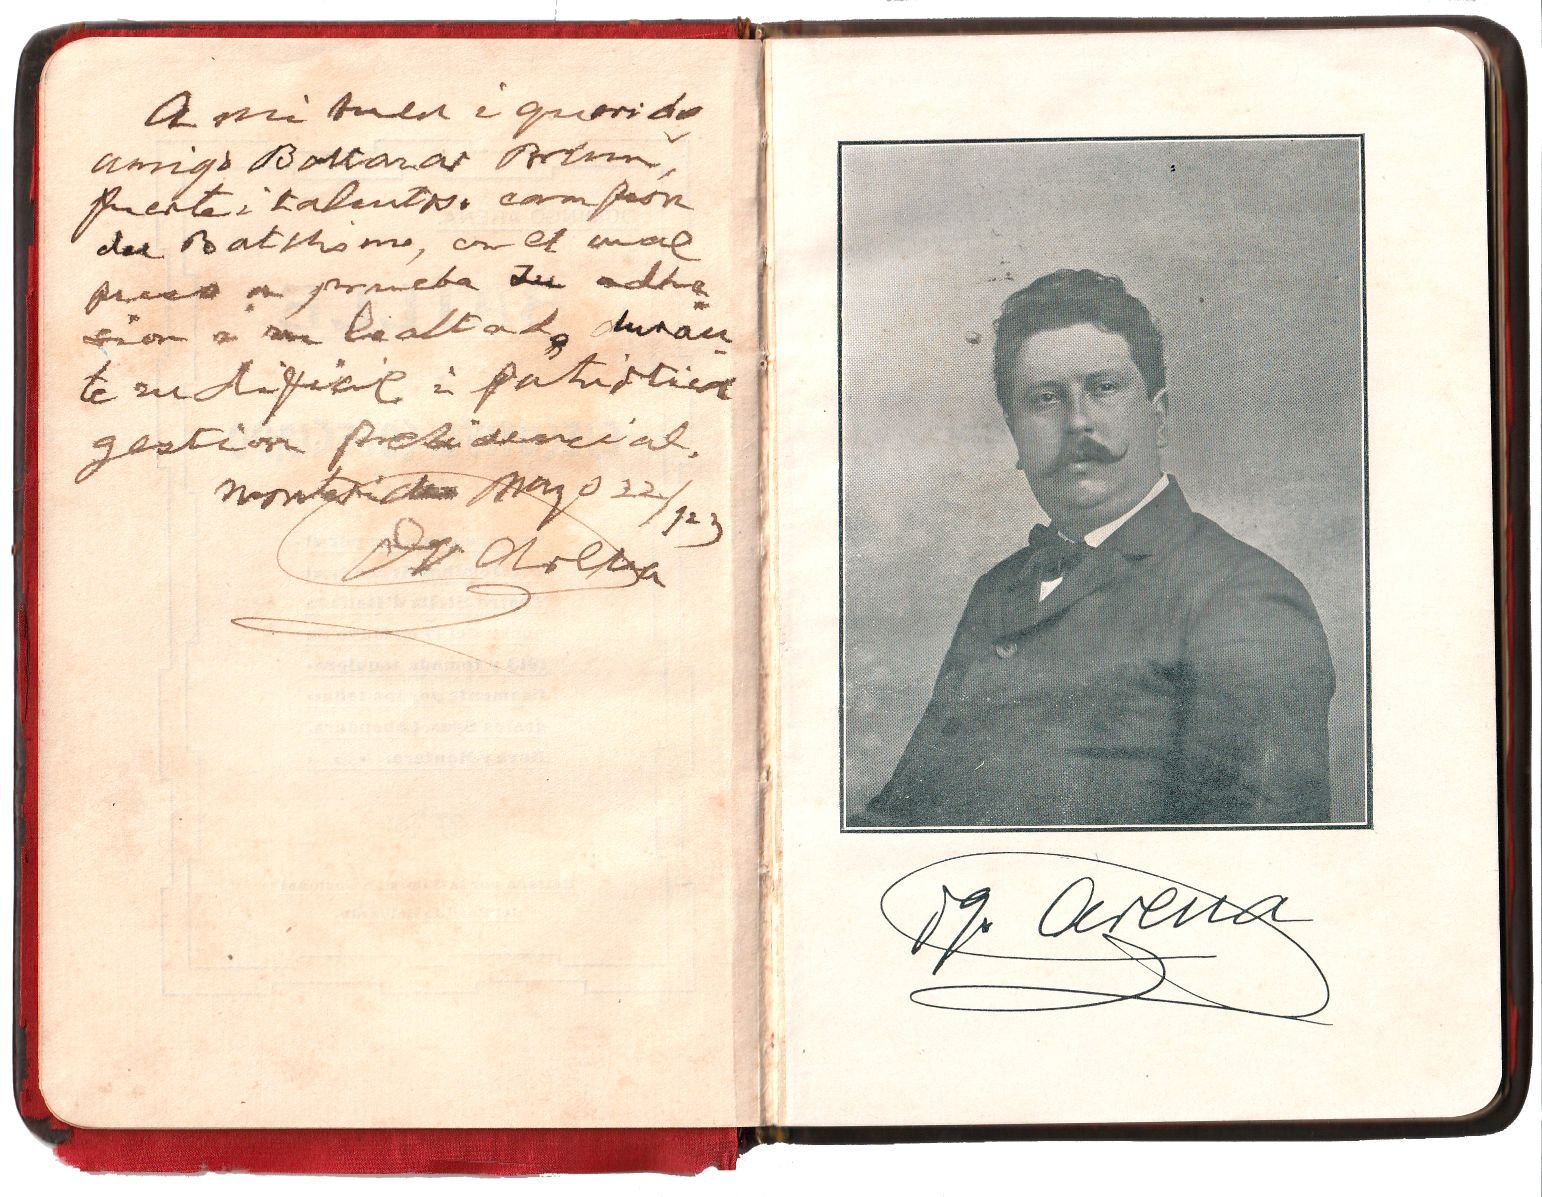 A mi buen i querido
amigo Baltasar Brum,
fuerte i talentoso campeón
del Batllismo, con el cual
puso a prueba su adhe
sion i su lealtad, duran-
te su dificil i patriótica
gestion presidencial.
Montevideo Mayo 22/923
Dgo. Arena
Dgo. Arena